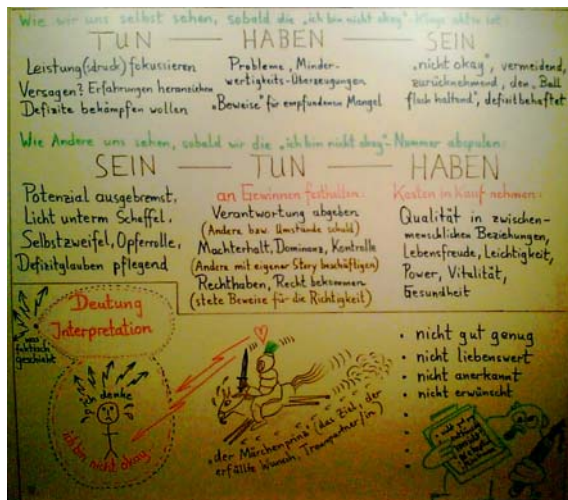 Wie wir uns selbst sehen, sobald die „ich bin nicht okay"-Klage aktiv ist:
TUN — HABEN — SEIN
Leistung(sdruck) fokussieren
Versagen? Erfahrungen heranziehen
Defizite bekämpfen wollen
Probleme, Minder-
wertigkeits-Überzeugungen
„Beweise" für empfundenen Mangel
„nicht okay", vermeidend,
zurücknehmend, den „Ball
flach haltend", defizitbehaftet
Wie Andere uns sehen, sobald wir die „ich bin nicht okay"-Nummer abspulen:
SEIN — TUN — HABEN
Potenzial ausgebremst,
Licht unterm Scheffel,
Selbstzweifel, Opferrolle,
Defizitglauben pflegend
an Gewinnen festhalten:
Verantwortung abgeben
(Andere bzw. Umstände schuld)
Machterhalt, Dominanz, Kontrolle
(Andere mit eigener Story beschäftigen)
Rechthaben, Recht bekommen
(stete Beweise für die Richtigkeit)
Kosten in Kauf nehmen:
Qualität in zwischen-
menschlichen Beziehungen,
Lebensfreude, Leichtigkeit,
Power, Vitalität,
Gesundheit
was
faktisch
geschieht
Deutung
Interpretation
denke
ich bin nicht okay
„der Märchenprinz (das Ziel, der
erfüllte Wunsch, Traumpartner/in)
• nicht gut genug
• nicht liebenswert
• nicht anerkannt
• nicht erwünscht